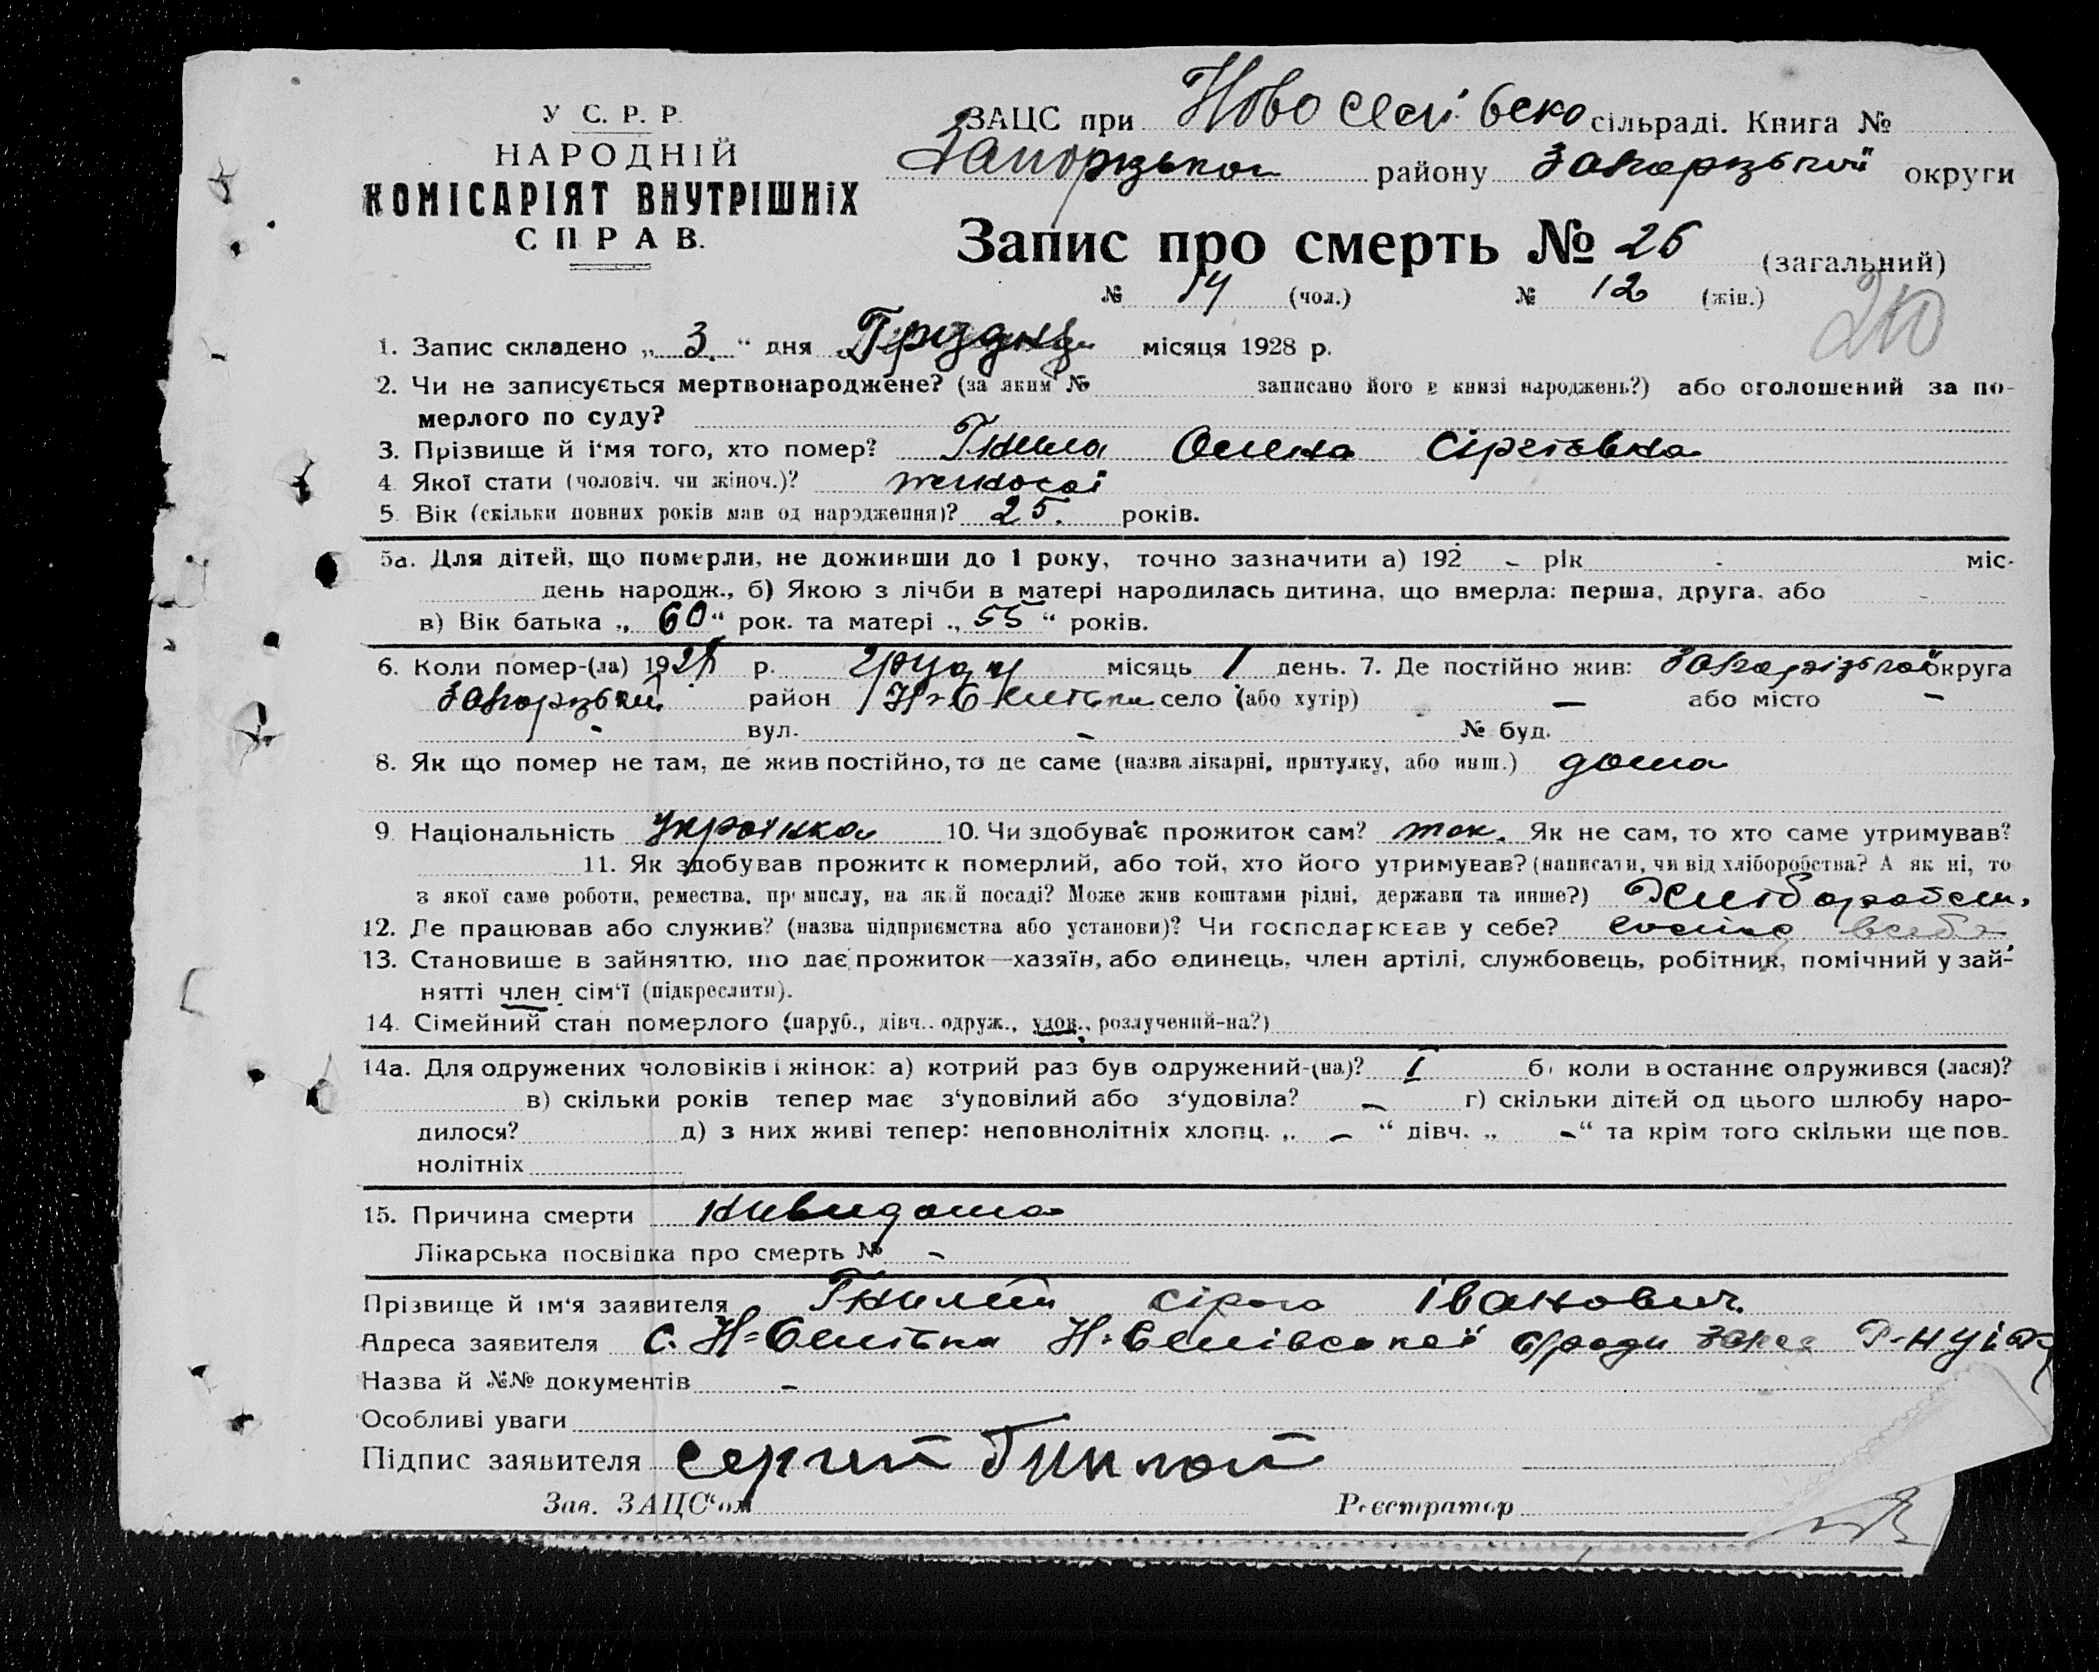 У С. Р. Р.
НАРОДНІЙ
КОМІСАРІЯТ ВНУТРІШНІХ
СПРАВ.
ЗАЦС при Новоселівско сільраді. Книга №
Запорізькои району Запорізькой округи
Запис про смерть № 26 (загальний)
№ 14 (чол.) № 12 (жін.)
210
1. Запис складено „ 3. “ дня Грудня місяця 1928 р.
2. Чи не записується мертвонароджене? (за яким № записано його в книзі народжень?) або оголошений за по-
мерлого по суду?
3. Прізвище й і‘мя того, хто помер? Гнила Олена Сіргіевна
4. Якої стати (чоловіч. чи жіноч.)? женоцкої
5. Вік (скільки повних років мав од народження)? 25. років.
5а. Для дітей, що померли, не доживши до 1 року, точно зазначити а) 192 - рік - міс-
день народж., б) Якою з лічби в матері народилась дитина, що вмерла: перша, друга, або -
в) Вік батька „ 60 “ рок. та матері „ 55 “ років.
6. Коли помер-(ла) 1928 р. груд місяць 1 день. 7. Де постійно жив: Запорізькой округа
Запорізький район Н-Селівка село (або хутір) — або місто -
- вул. - № буд.
8. Як що помер не там, де жив постійно, то де саме (назва лікарні, притулку, або инш.) дома
9. Національність Українка 10. Чи здобуває прожиток сам? так. Як не сам, то хто саме утримував?
11. Як здобував прожиток померлий, або той, хто його утримував? (написати, чи від хліборобства? А як ні, то
з якої саме роботи, ремества, промислу, на якій посаді? Може жив коштами рідні, держави та инше?)
12. Де працював або служив? (назва підприємства або установи)? Чи господарював у себе?
13. Становище в зайняттю, що дає прожиток—хазяїн, або одинець, член артілі, службовець, робітник, помічний у зай-
нятті член сім‘ї (підкреслити).
14. Сімейний стан померлого (паруб., дівч.. одруж., удов., розлучений-на?)
14а. Для одружених чоловіків і жінок: а) котрий раз був одружений-(на)? I б) коли в останнє одружився (лася)?
в) скільки років тепер має з‘удовілий або з‘удовіла? - г) скільки дітей од цього шлюбу наро-
дилося? д) з них живі тепер: неповнолітніх хлопц. „ - “ дівч. „ - “ та крім того скільки ще пов-
нолітніх
15. Причина смерти нивидома
Лікарська посвідка про смерть № -
Прізвище й ім‘я заявителя Гнилий Іванович
Адреса заявителя с. Н=Селівка Н=Селівської с/ради Р-ну
Назва й №№ документів -
Особливі уваги
Підпис заявителя Сергей Гнилой
Зав. ЗАЦС‘ом Реєстратор